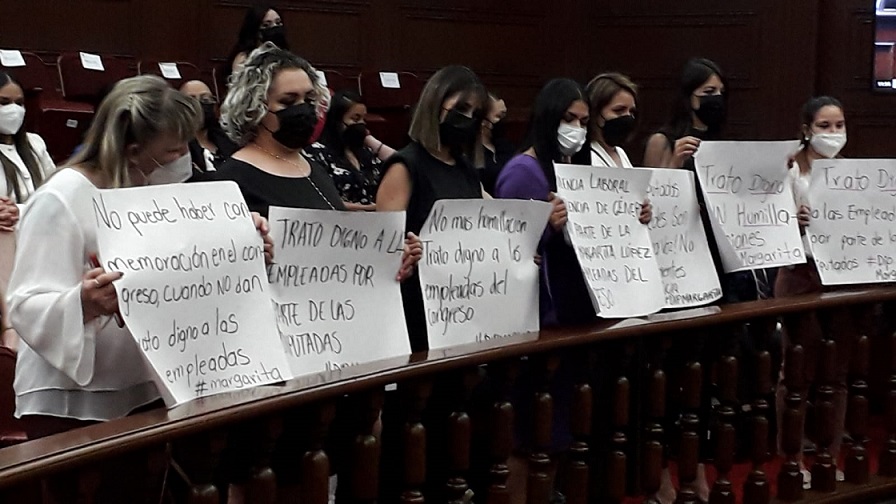 No puede haber con
memoración en el con
greso, cuando NO dan
trato digno a las
empleadas
#margarita
TRATO DIGNO A L
EMPLEADAS POR
ARTE DE LAS
PUTADAS
No mas humillación
Trato digno a las
empleadas del
Congreso
ENCIA LABORAL
ENCIA DE GÉNER
PARTE DE LA
ARGARITA LÓPEZ
MEADAS DEL
ESO
putadas
des son
No
entes
#DIPMARGARITA
Trato Digno
IN Humilla-
ciones
Margarita
Trato D
a las Emplead
por parte de l
iputados #Dip